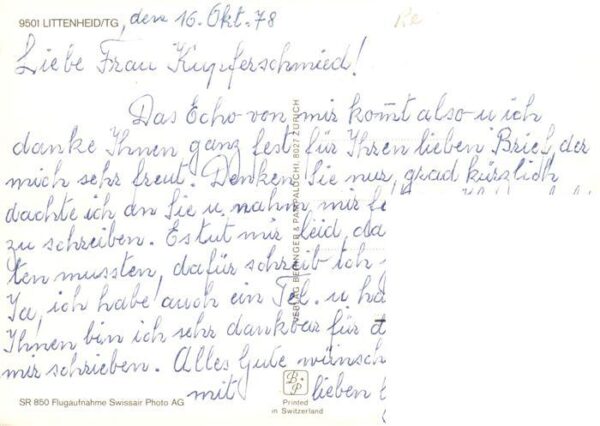 9501 LITTENHEID/TG, den 16. Okt. 78
Liebe Frau Kupferschmied!
Das Echo von mir kom̅t also u ich
danke Ihnen ganz fest für Ihren lieben Brief, der
mich sehr freut. Denken Sie nur, grad kürzlich
dachte ich an Sie u. nahm mir fe
zu schreiben. Es tut mir leid, da
ten mussten, dafür schreib ich
Ja, ich habe auch ein Tel. u hä
Ihnen bin ich sehr dankbar für d
mir schrieben. Alles Gute wünsch
mit lieben
VERLAG BERINGER & PAMPALUCHI, 8027 ZÜRICH
SR 850 Flugaufnahme Swissair Photo AG
B P
Printed
in Switzerland